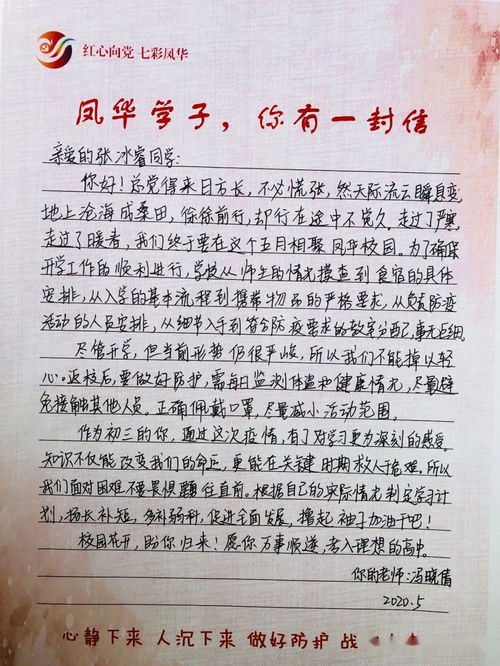 红心向党 七彩凤华
凤华学子，你有一封信
亲爱的张冰睿同学：
你好！总觉得来日方长，不必慌张，然天际流云瞬息变，
地上沧海成桑田，徐徐前行，却行在途中不觉久。走过了严寒，
走过了暖春，我们终于要在这个五月相聚凤华校园。为了确保
开学工作的顺利进行，学校从师生的情况摸查到食宿的具体
安排，从入学的基本流程到携带物品的严格要求，从负责防疫
活动的人员安排，从细节入手到符合防疫要求的教室分配，事无巨细。
尽管开学，但当前形势仍很严峻，所以我们不能掉以轻
心。返校后，要做好防护，需每日监测体温和健康情况，尽量避
免接触其他人员。正确佩戴口罩，尽量减小活动范围。
作为初三的你，通过这次疫情，有了对学习更为深刻的感受。
知识不仅能改变我们的命运，更能在关键时期救人于危难，所以
我们面对困难不要畏惧，勇往直前。根据自己的实际情况制定学习计
划，扬长补短，多补弱科，促进全面发展，撸起袖子加油干吧！
校园花开，盼你归来！愿你万事顺遂，考入理想的高中。
你的老师：冯晓倩
2020.5
心静下来 人沉下来 做好防护 战